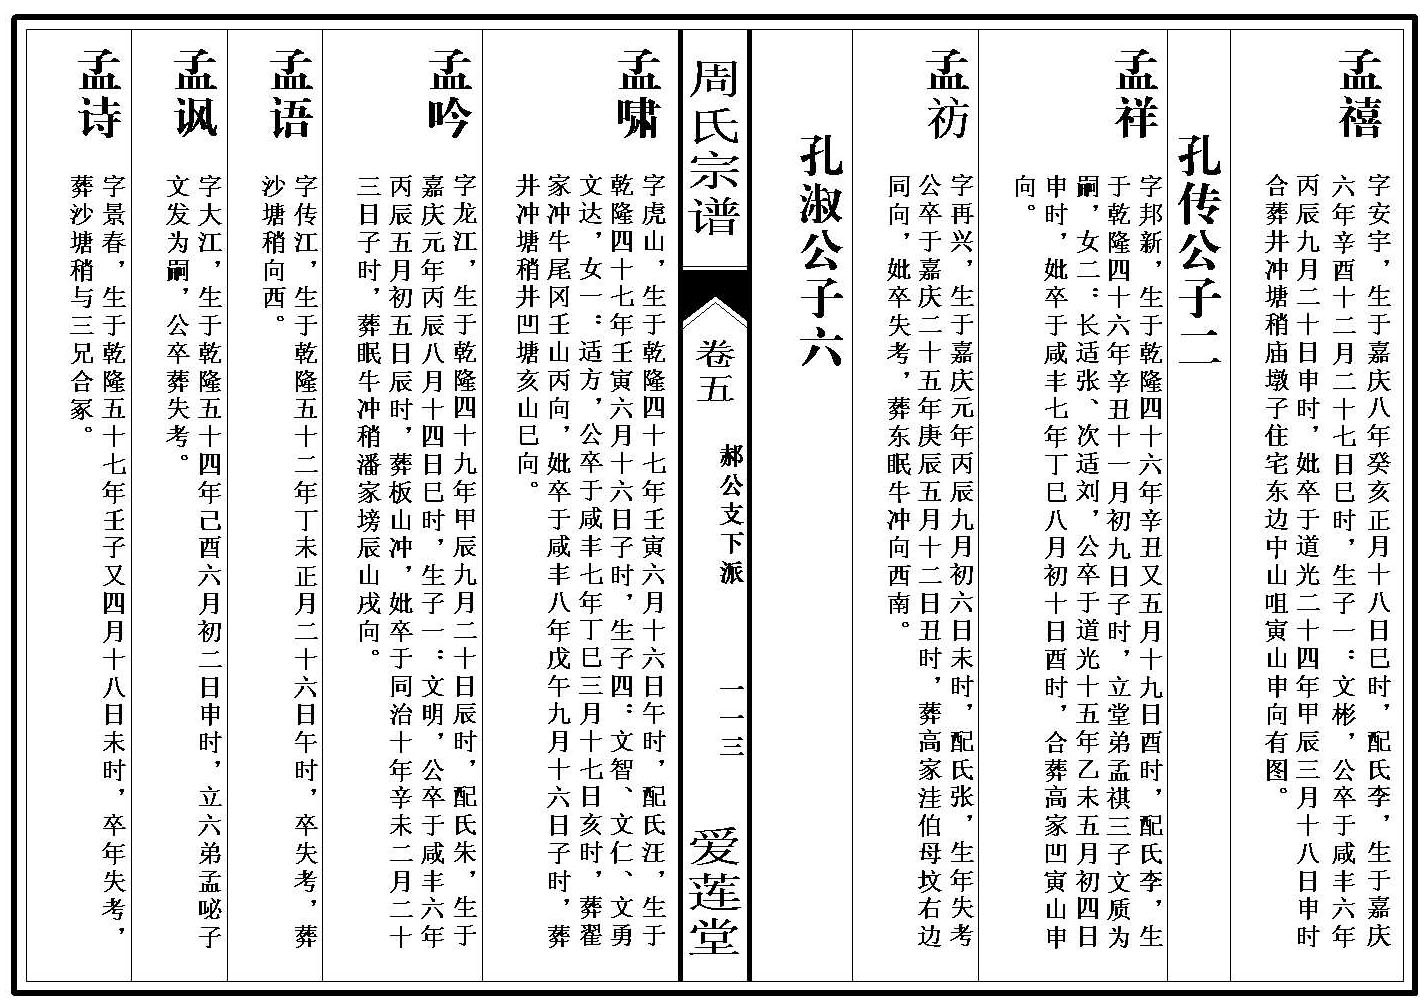 孟禧
字安宇，生于嘉庆八年癸亥正月十八日巳时，配氏李，生于嘉庆
六年辛酉十二月二十七日巳时，生子一：文彬，公卒于咸丰六年
丙辰九月二十日申时，妣卒于道光二十四年甲辰三月十八日申时
合葬井冲塘稍庙墩子住宅东边中山咀寅山申向有图。
孔传公子二
孟祥
字邦新，生于乾隆四十六年辛丑又五月十九日酉时，配氏李，生
于乾隆四十六年辛丑十一月初九日子时，立堂弟孟祺三子文质为
嗣，女二：长适张、次适刘，公卒于道光十五年乙未五月初四日
申时，妣卒于咸丰七年丁巳八月初十日酉时，合葬高家凹寅山申
向。
孟祊
字再兴，生于嘉庆元年丙辰九月初六日未时，配氏张，生年失考
公卒于嘉庆二十五年庚辰五月十二日丑时，葬高家洼伯母坟右边
同向，妣卒失考，葬东眠牛冲向西南。
孔淑公子六
周氏宗谱
卷五
郝公支下派
一一三
爱莲堂
孟啸
字虎山，生于乾隆四十七年壬寅六月十六日午时，配氏汪，生于
乾隆四十七年壬寅六月十六日子时，生子四：文智、文仁、文勇
文达，女一：适方，公卒于咸丰七年丁巳三月十七日亥时，葬翟
家冲牛尾冈壬山丙向，妣卒于咸丰八年戊午九月十六日子时，葬
井冲塘稍井凹塘亥山巳向。
孟吟
字龙江，生于乾隆四十九年甲辰九月二十日辰时，配氏朱，生于
嘉庆元年丙辰八月十四日巳时，生子一：文明，公卒于咸丰六年
丙辰五月初五日辰时，葬板山冲，妣卒于同治十年辛未二月二十
三日子时，葬眠牛冲稍潘家塝辰山戌向。
孟语
字传江，生于乾隆五十二年丁未正月二十六日午时，卒失考，葬
沙塘稍向西。
孟讽
字大江，生于乾隆五十四年己酉六月初二日申时，立六弟孟咇子
文发为嗣，公卒葬失考。
孟诗
字景春，生于乾隆五十七年壬子又四月十八日未时，卒年失考，
葬沙塘稍与三兄合冢。